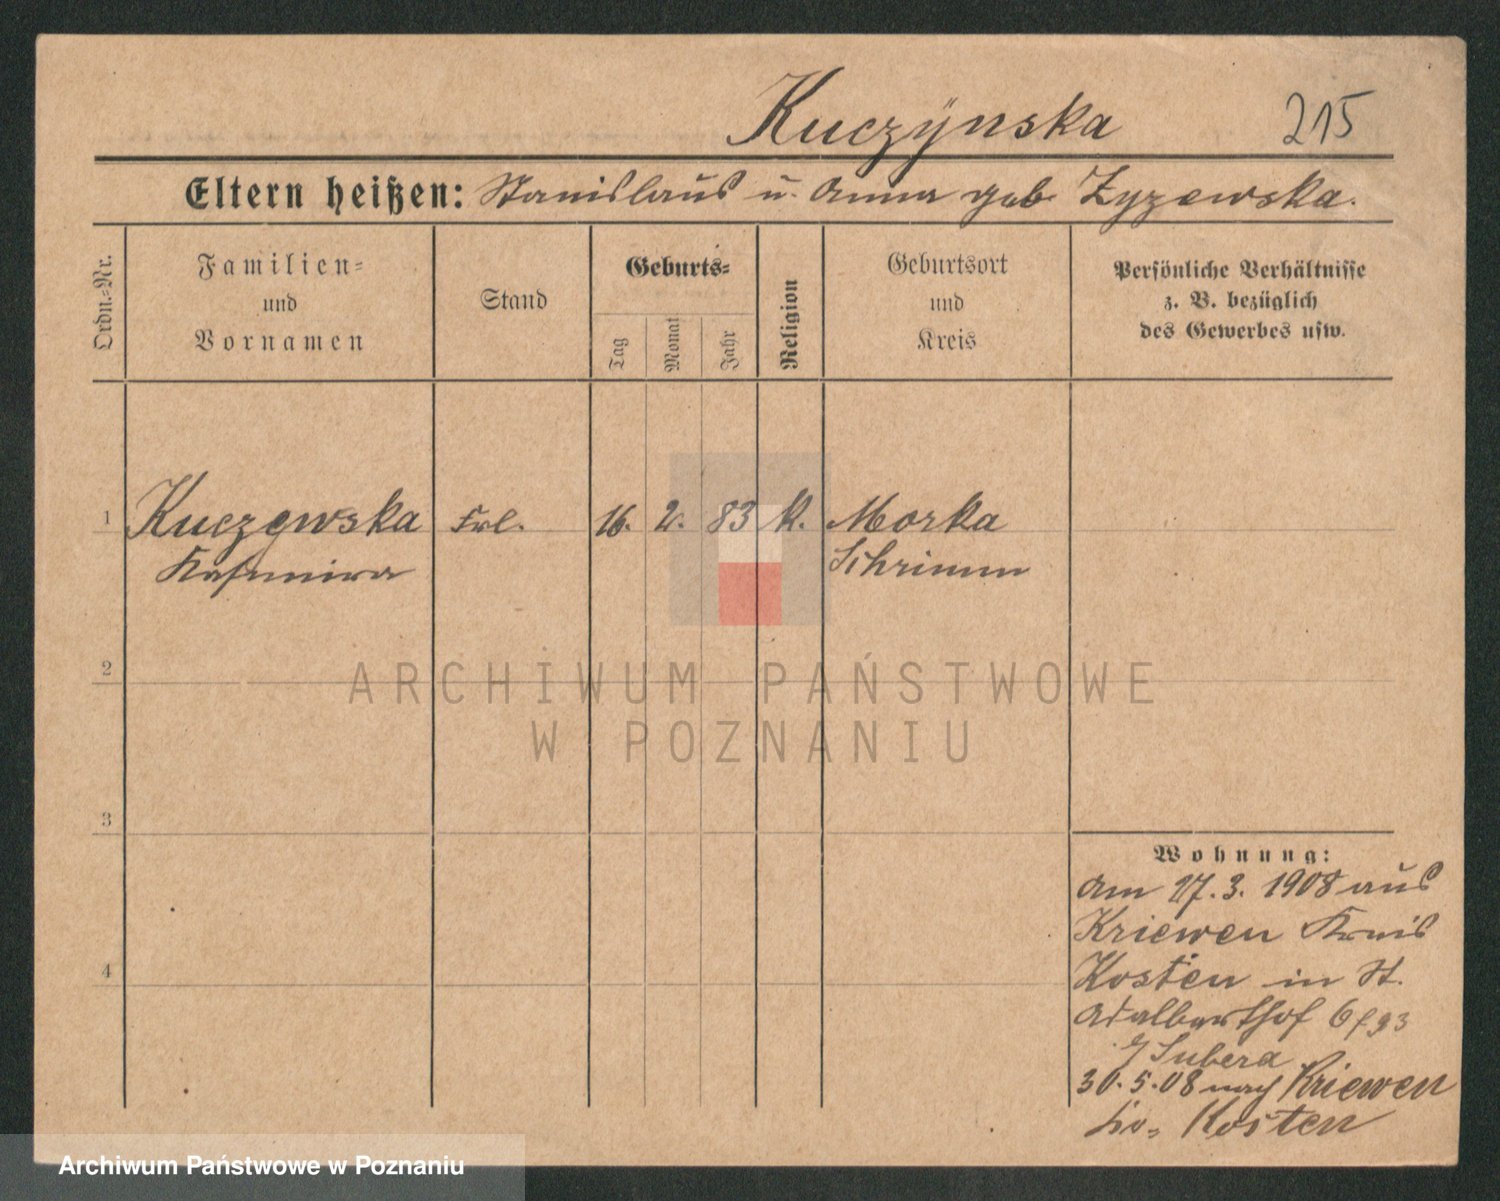 Kuczÿnska 215
Eltern heißen: Stanislaus u. Anna geb. Zyzewska.
Ordn.-Nr.
Familien-
und
Vornamen
Stand
Geburts-
Tag
Monat
Jahr
Religion
Geburtsort
und
Kreis
Persönliche Verhältnisse
z. B. bezüglich
des Gewerbes usw.
1 Kuczewska Frl. 16. 2. 83 k. Morka
Kasimira Schrimm
2
ARCHIWUM PAŃSTWOWE
W POZNANIU
3
Wohnung:
Am 27.3. 1908 aus
Kriewen Kreis
4
Kosten in St.
Adalberthof 6
30.5.08 nach Kriewen
Kosten
Archiwum Państwowe w Poznaniu